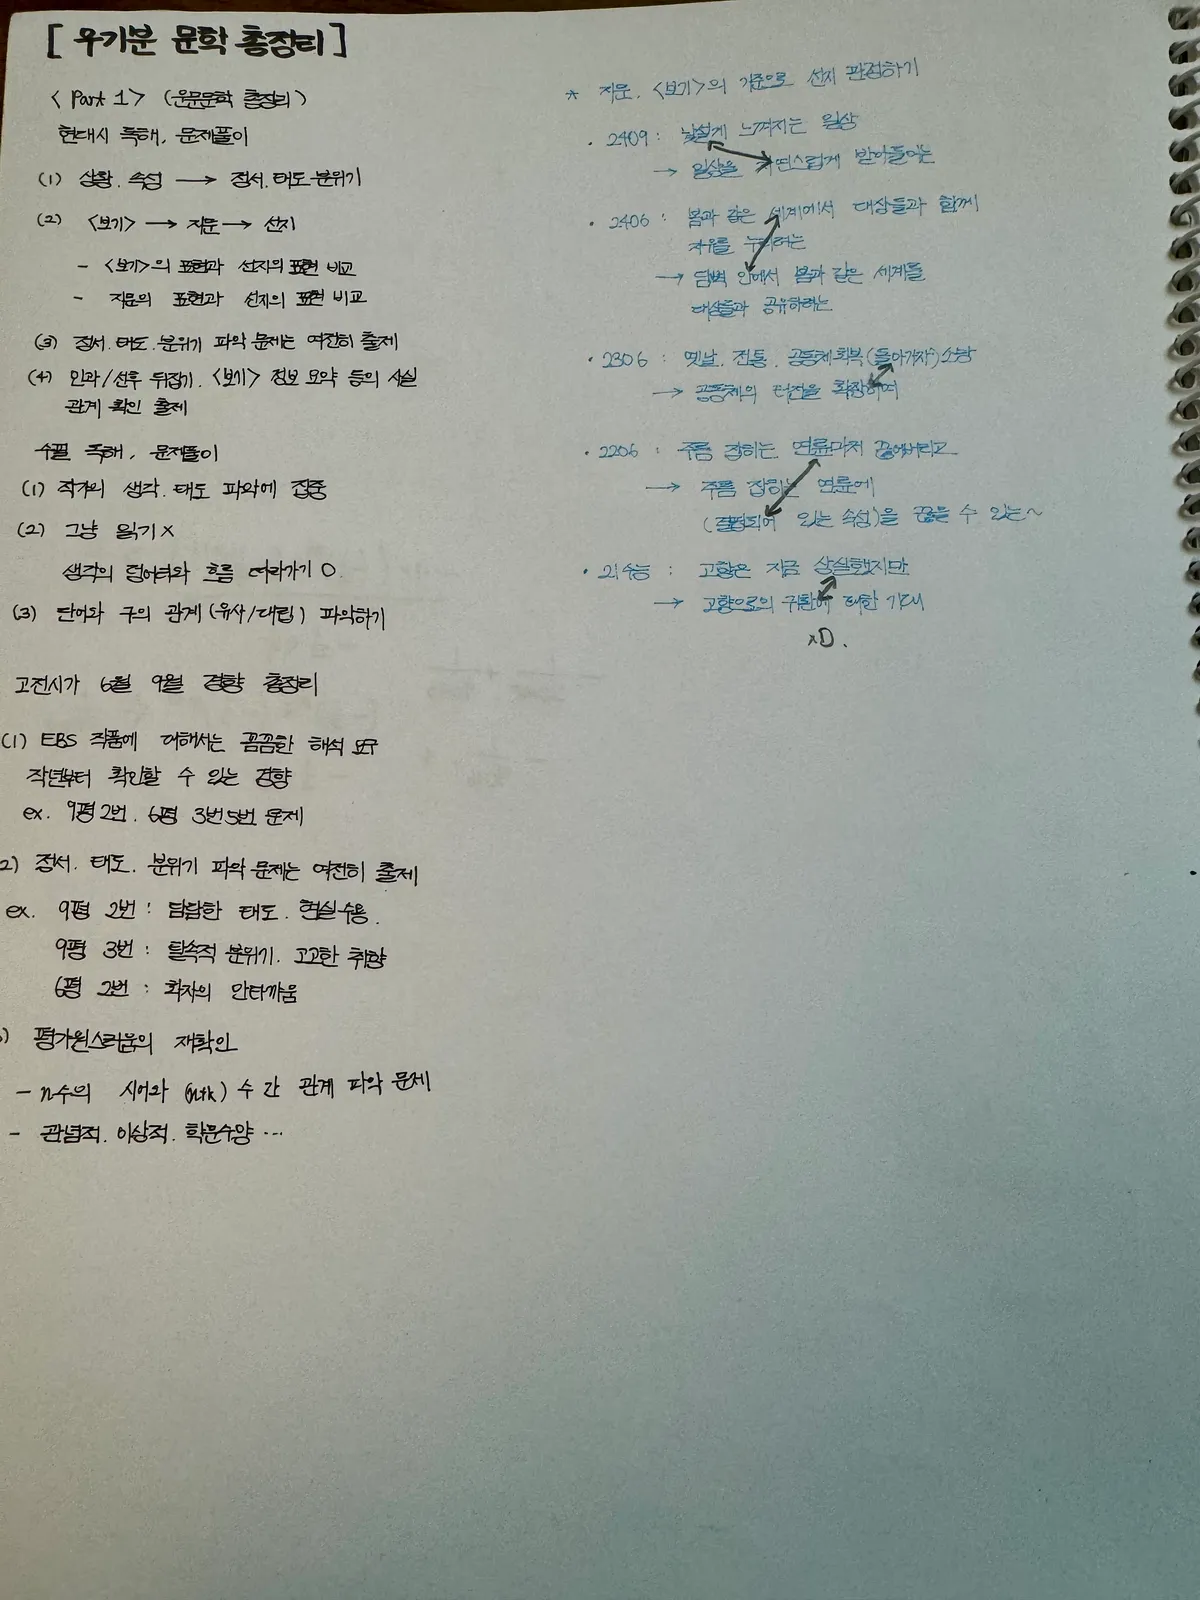 [ 우기분 문학 총정리 ]
< Part 1 > (운문문학 총정리)
현대시 독해, 문제풀이
(1) 상황. 속성 → 정서. 태도. 분위기
(2) <보기> → 지문 → 선지
- <보기>의 표현과 선지의 표현 비교
- 지문의 표현과 선지의 표현 비교
(3) 정서. 태도. 분위기 파악 문제는 여전히 출제
(4) 인과/선후 뒤집기. <보기> 정보 요약 등의 사실
관계 확인 출제
수필 독해, 문제풀이
(1) 작가의 생각. 태도 파악에 집중
(2) 그냥 읽기 x
생각의 덩어리와 흐름 따라가기 O.
(3) 단어와 구의 관계 (유사/대립) 파악하기
고전시가 6월 9월 경향 총정리
(1) EBS 작품에 대해서는 꼼꼼한 해석 요구
작년부터 확인할 수 있는 경향
ex. 9평 2번. 6평 3번 5번 문제
2) 정서. 태도. 분위기 파악 문제는 여전히 출제
ex. 9평 2번 : 담담한 태도. 현실수용.
9평 3번 : 탈속적 분위기. 고고한 취향
6평 2번 : 화자의 안타까움
) 평가원스러움의 재확인
- n수의 시어와 (n+k) 수 간 관계 파악 문제
- 관념적. 이상적. 학문수양 ...
* 지문. <보기>의 기준으로 선지 판정하기
· 2409 : 낯설게 느껴지는 일상
→ 일상을 자연스럽게 받아들이는
· 2406 : 봄과 같은 세계에서 대상들과 함께
자유를 누리려는
→ 담벽 안에서 봄과 같은 세계를
대상들과 공유하려는
· 2306 : 옛날. 전통. 공동체 회복 (돌아가자!) 소망
→ 공동체의 터전을 확장하며
· 2206 : 주름 잡히는 연륜마저 끊어버리고
→ 주름 잡히는 연륜에
(결핍되어 있는 속성)을 끊을 수 있는~
· 21수능 : 고향은 지금 상실했지만
→ 고향으로의 귀환에 대한 기대
xD.